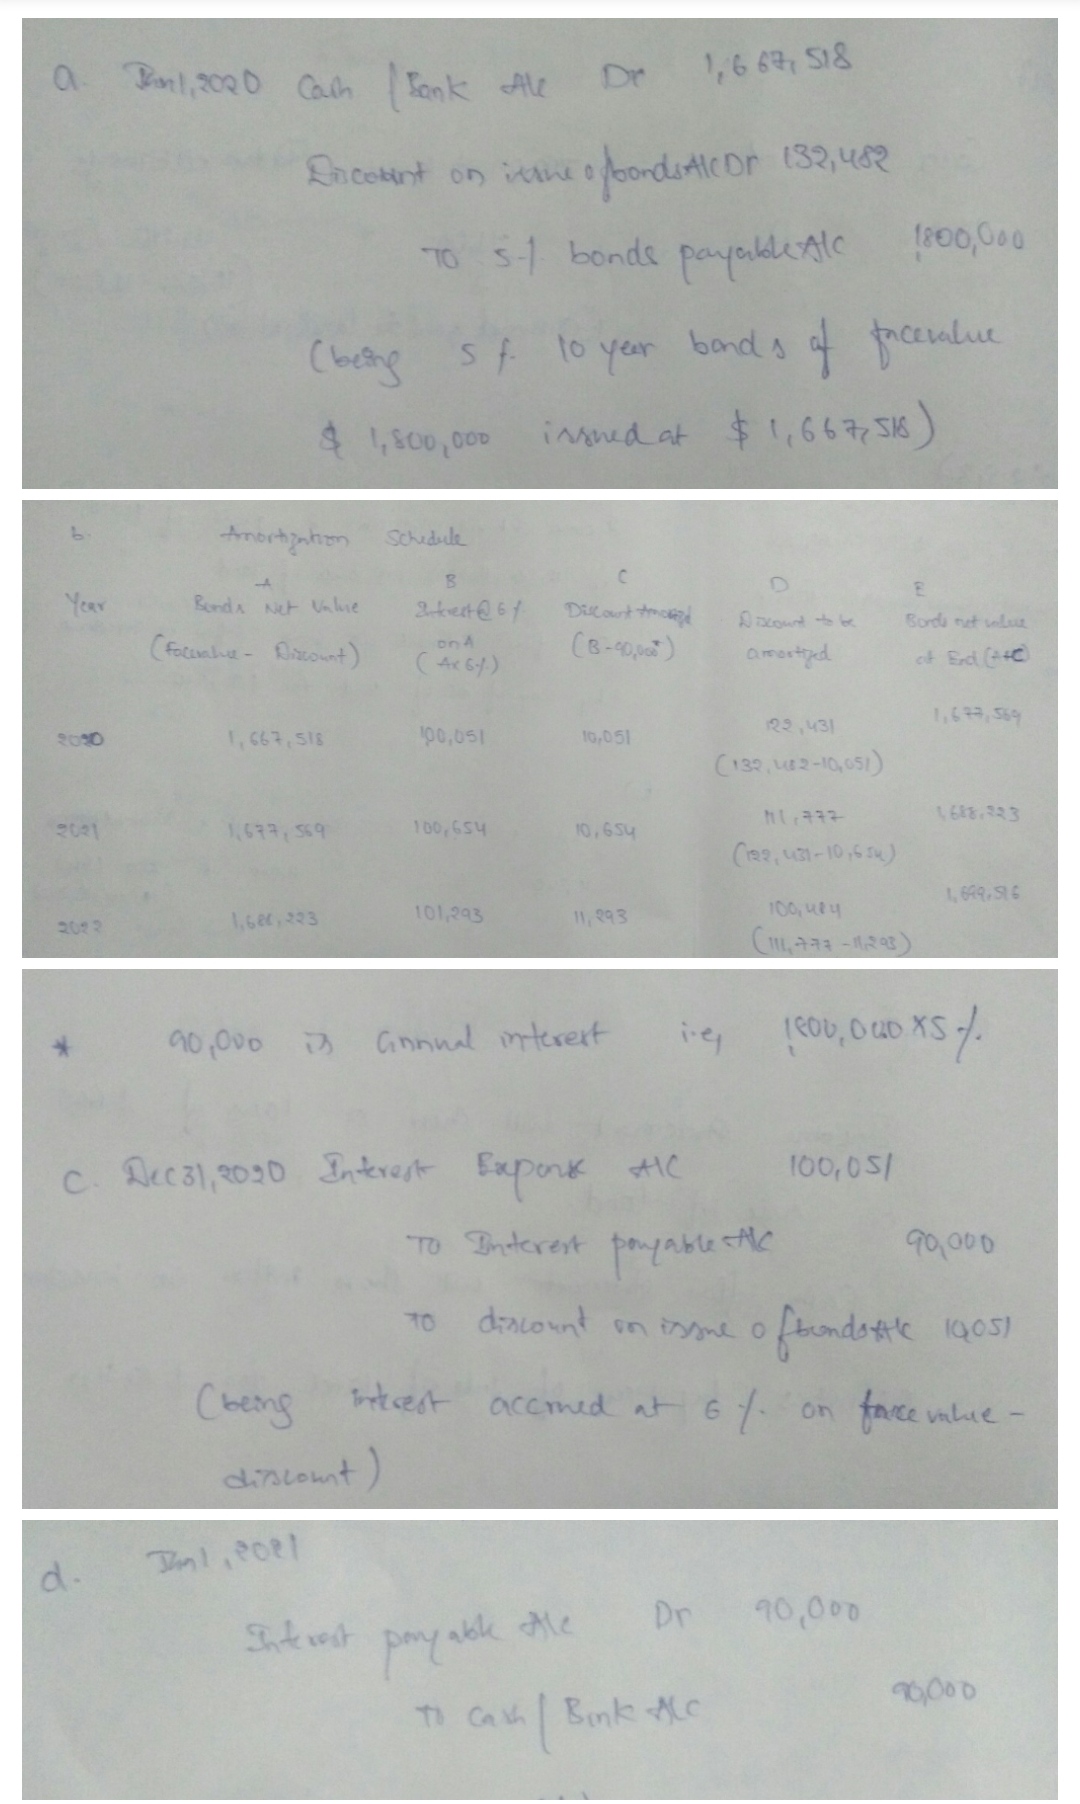 a. Jan1,2020 Cash / Bank A/c Dr 1,667,518
Discount on issue of bonds A/C Dr 132,482
TO 5% bonds payable A/C 1800,000
(being 5% 10 year bonds of facevalue
$ 1,800,000 issued at $ 1,667,518)
b. Amortization Schedule
A B C D E
Year Bonds Net Value Interest@6% Discount Amortized Discount to be Bonds net value
(Facevalue - Discount) on A (B-90,000*) amortized at End (A+C)
(Ax6%)
2020 1,667,518 100,051 10,051 122,431 1,677,569
(132,482-10,051)
2021 1,677,569 100,654 10,654 111,777 1,688,223
(122,431-10,654)
2022 1,688,223 101,293 11,293 100,484 1,699,516
(111,777-11,293)
* 90,000 is annual interest i.e, 1800,000 X5%.
c. Dec31,2020 Interest Expense A/C 100,051
TO Interest payable A/c 90,000
TO discount on issue of bonds A/c 10,051
(being interest accrued at 6%. on face value -
discount)
d. Jan1,2021
Interest payable A/c Dr 90,000
To Cash / Bank A/C 90,000